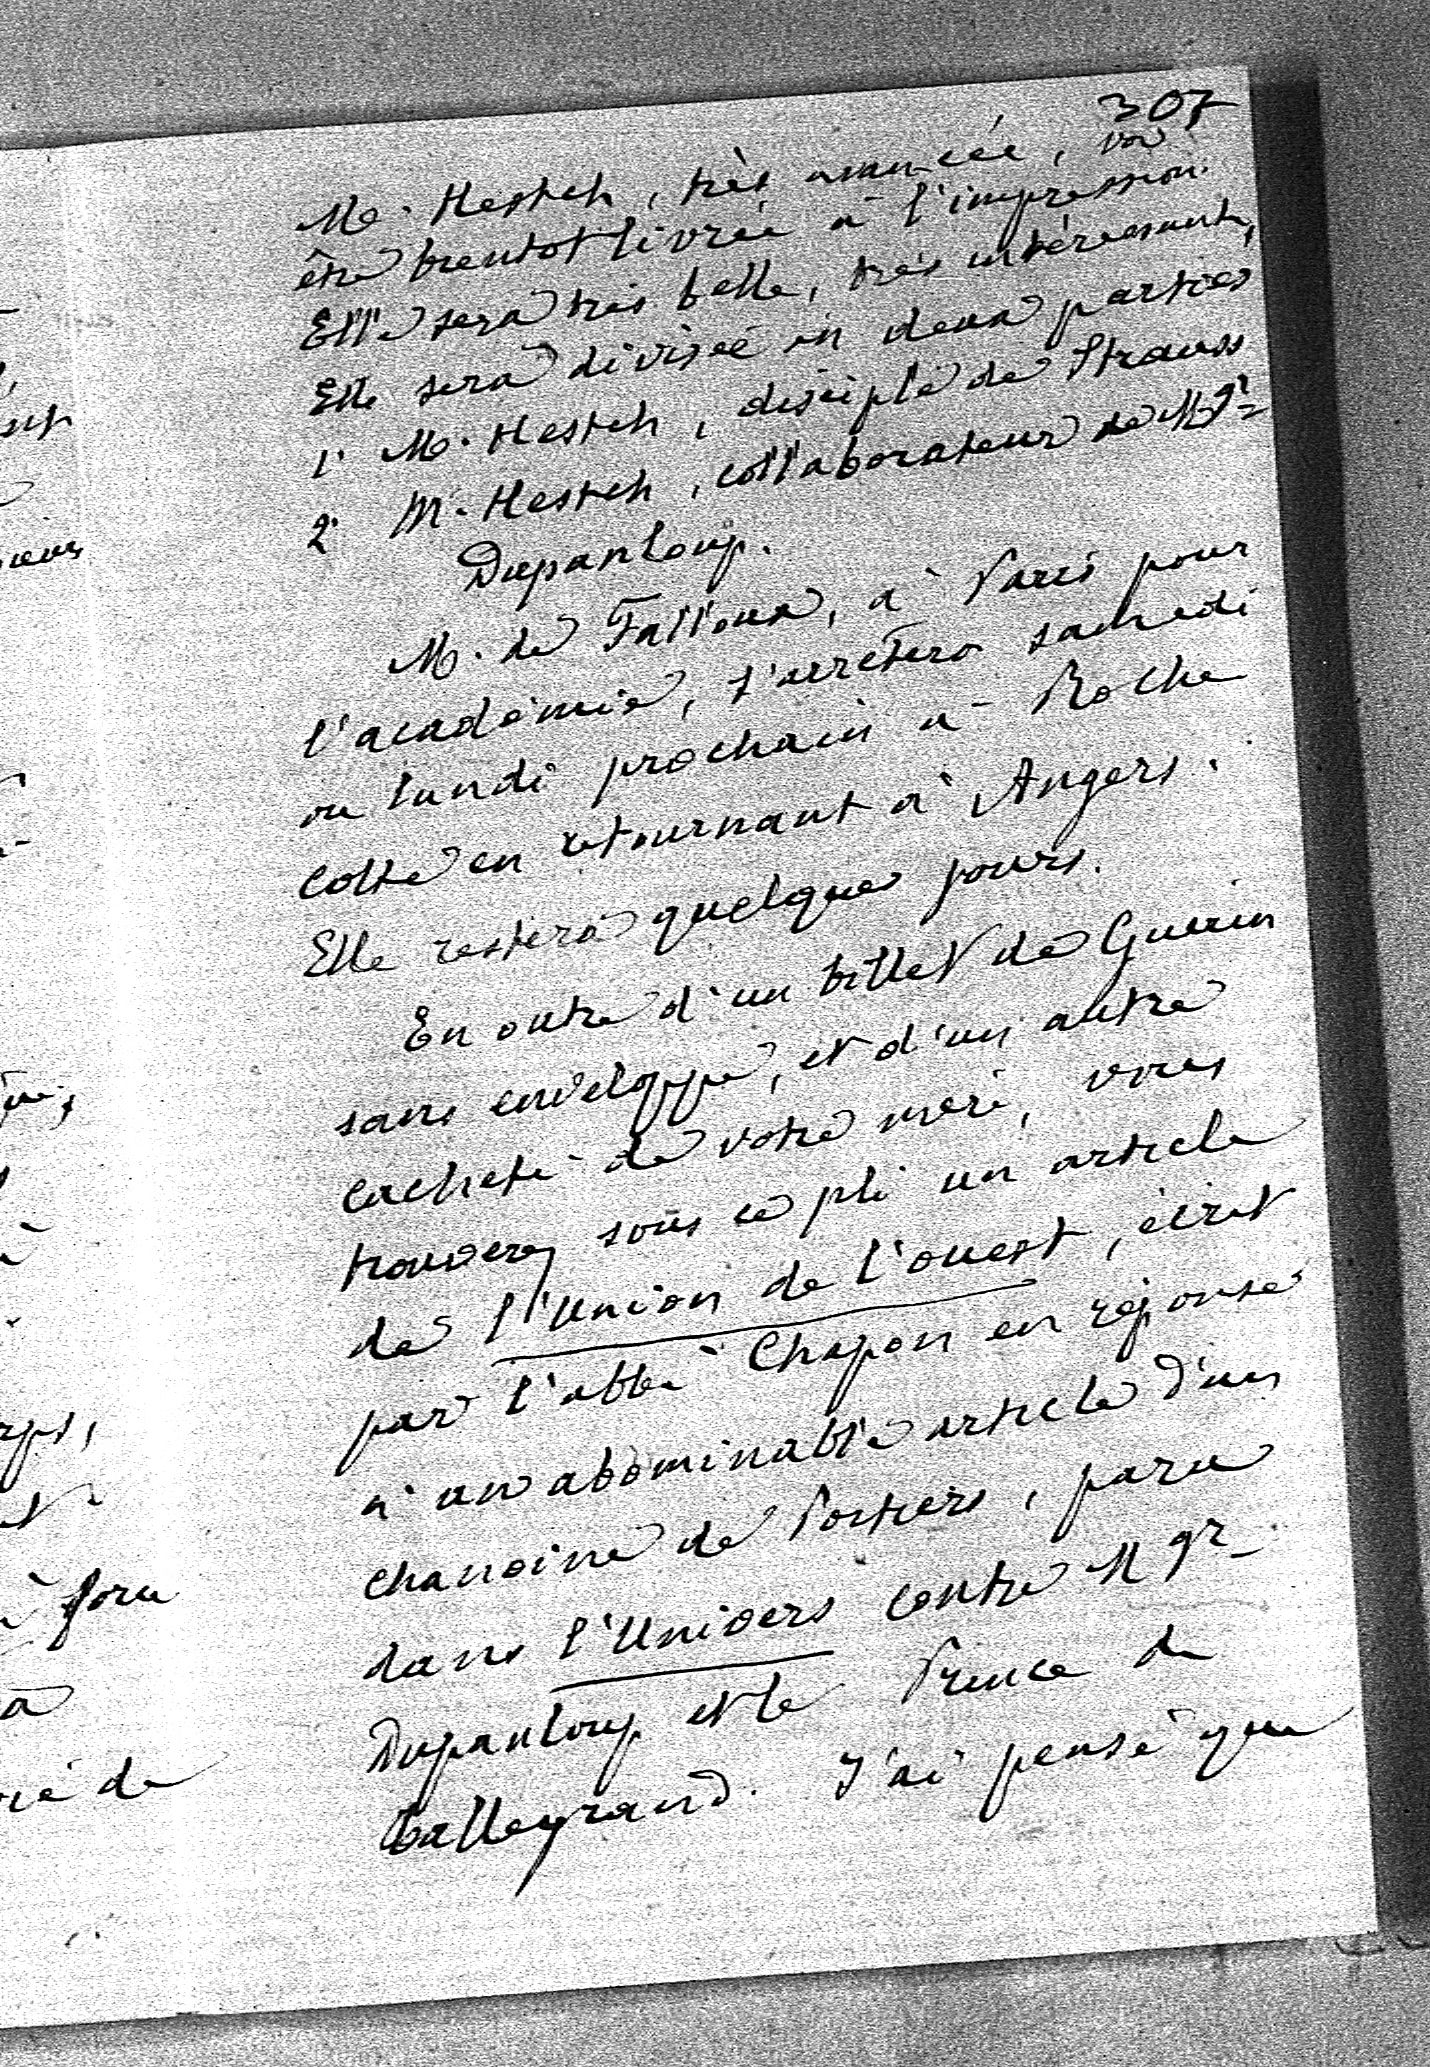 307
M. Hestch, très avancée, va
être bientot livrée à l'impression.
Elle sera très belle, très intéressante,
Elle sera divisée en deux parties
1° M. Hestch, disciple de Strauss
2° M. Hestch, collaborateur de Mgr
Dupanloup.
M. de Falloux, à Paris pour
l'académie, s'arrêtera samedi
ou lundi prochain à Roche
cotte en retournant à Angers.
Elle restera quelques jours.
En outre d'un billet de Guerin
sans enveloppe, et d'un autre
cacheté de votre mère, vous
trouverez sous ce pli un article
de l'Union de l'ouest, écrit
par l'abbé Chapon en réponse
à un abominable article d'un
chanoine de Poitiers, paru
dans l'Univers contre Mgr
Dupanloup et le Prince de
Talleyrand. J'ai pensé que
à force
à
de